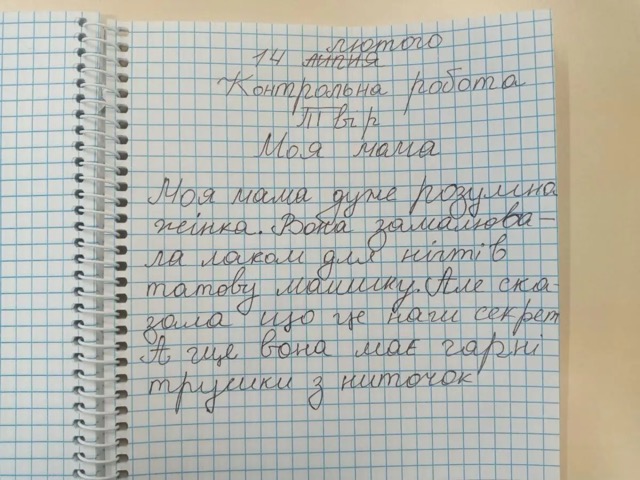 лютого
14 липня
Контрольна робота
Твір
Моя мама
Моя мама дуже розумна
жінка. Вона замалюва-
ла лаком для нігтів
татову машинку. Але ска-
зала що це наш секрет
А ще вона має гарні
трусики з ниточок